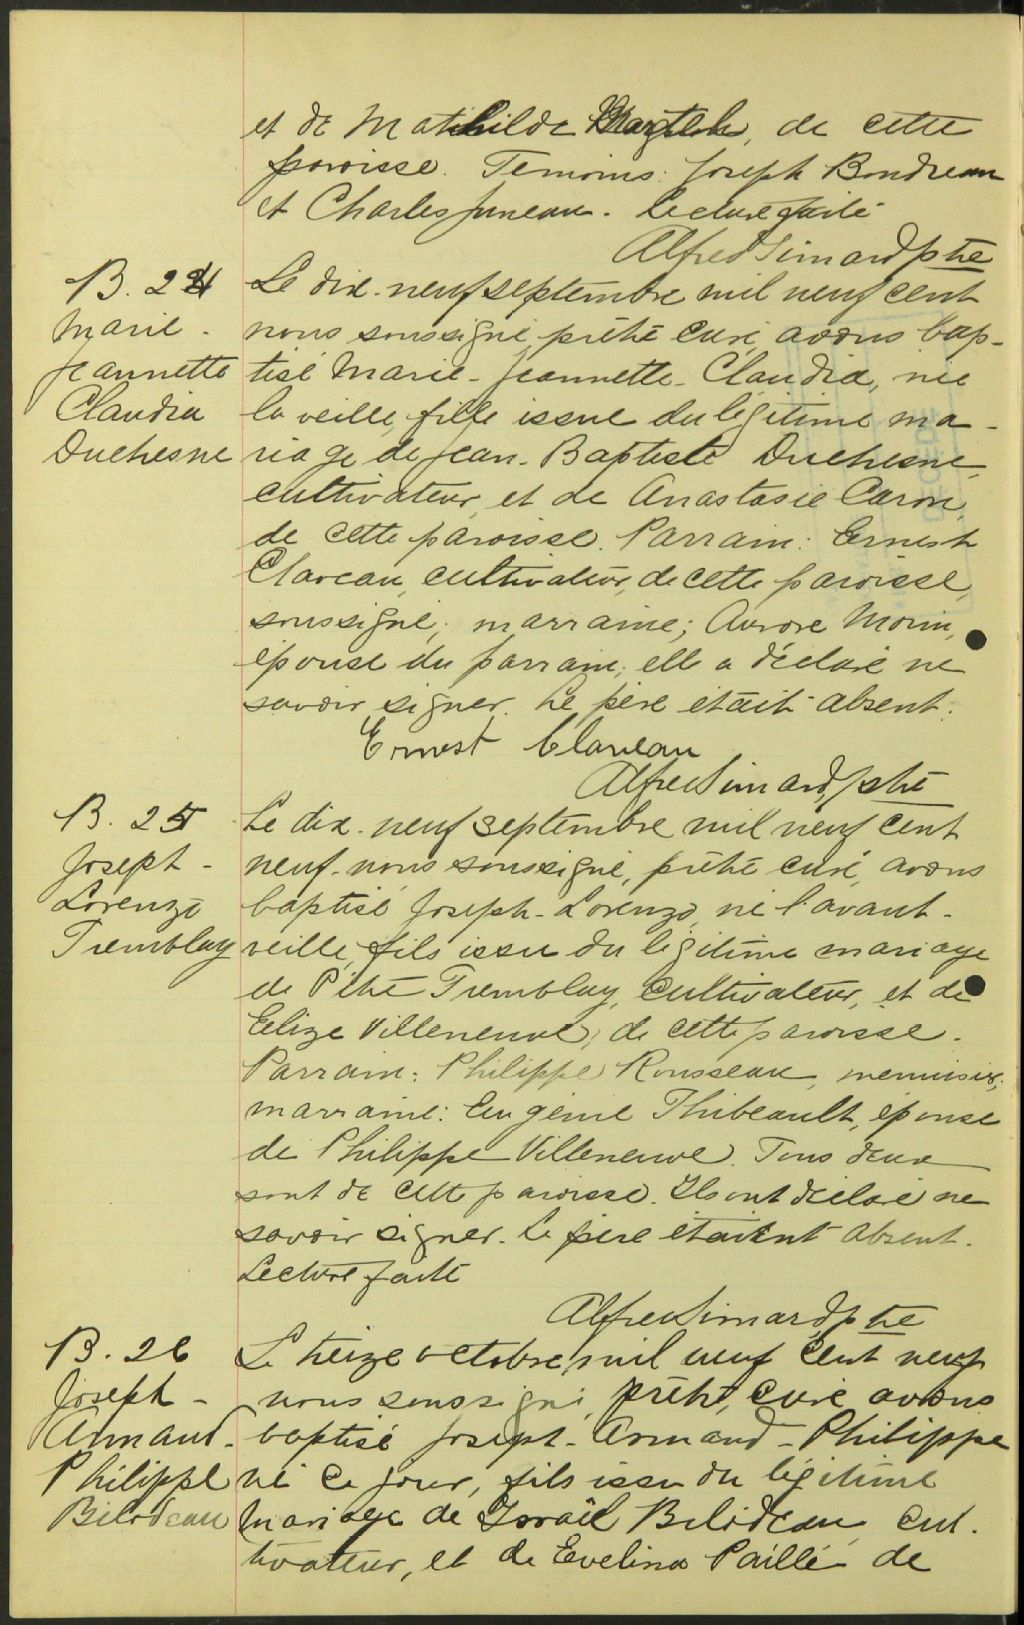 et de Mathilde de cette
paroisse. Temoins: Joseph Boudreau
et Charles Juneau. Lecture faite
Alfred Simard ptre
B. 24
Marie-
Jeannette
Claudia
Duchesne
Le dix-neuf septembre mil neuf cent
nous soussigné, prêtre curé, avons bap-
tisé Marie-Jeannette-Claudia, née
la veille, fille issue du légitime ma-
riage de Jean-Baptiste Duchesne,
cultivateur, et de Anastasie Caron,
de cette paroisse. Parrain: Ernest
Claveau, cultivateur, de cette paroisse,
soussigné; marraine; Aurore Morin,
épouse du parrain; elle a déclaré ne
savoir signer. Le père était absent.
Ernest Claveau
Alfred Simard, ptre
B. 25
Joseph-
Lorenzo
Tremblay
Le dix-neuf septembre mil neuf cent
neuf, nous soussigné, prêtre curé, avons
baptisé Joseph-Lorenzo, né l'avant-
veille, fils issu du légitime mariage
de Pitre Tremblay, cultivateur, et de
Elize Villeneuve, de cette paroisse.
Parrain: Philippe Rousseau, menuisier;
marraine: Eugénie Thibeault, épouse
de Philippe Villeneuve. Tous deux
sont de cette paroisse. Ils ont déclaré ne
savoir signer. Le père était absent.
Lecture faite
Alfred Simard, ptre
B. 26
Joseph-
Armand-
Philippe
Bilodeau
Le treize octobre, mil neuf cent neuf
nous soussigné, prêtre, curé avons
baptisé Joseph-Armand-Philippe
né ce jour, fils issu du légitime
mariage de Israël Bilodeau, cul-
tivateur, et de Evelina Paillé de